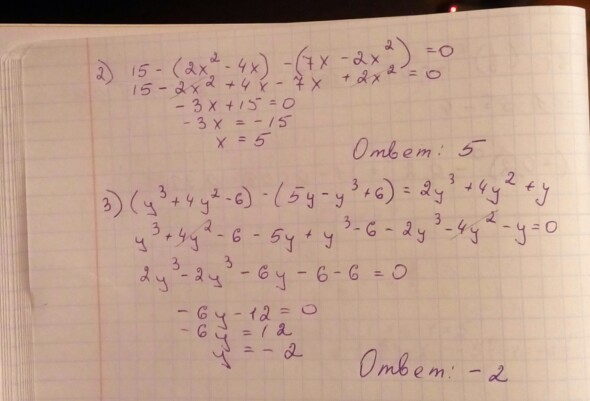 2) 15 - (2x² - 4x) - (7x - 2x²) = 0
15 - 2x² + 4x - 7x + 2x² = 0
- 3x + 15 = 0
- 3x = - 15
x = 5
Ответ: 5
3) (y³ + 4y² - 6) - (5y - y³ + 6) = 2y³ + 4y² + y
y³ + 4y² - 6 - 5y + y³ - 6 - 2y³ - 4y² - y = 0
2y³ - 2y³ - 6y - 6 - 6 = 0
- 6y - 12 = 0
- 6y = 12
y = - 2
Ответ: - 2